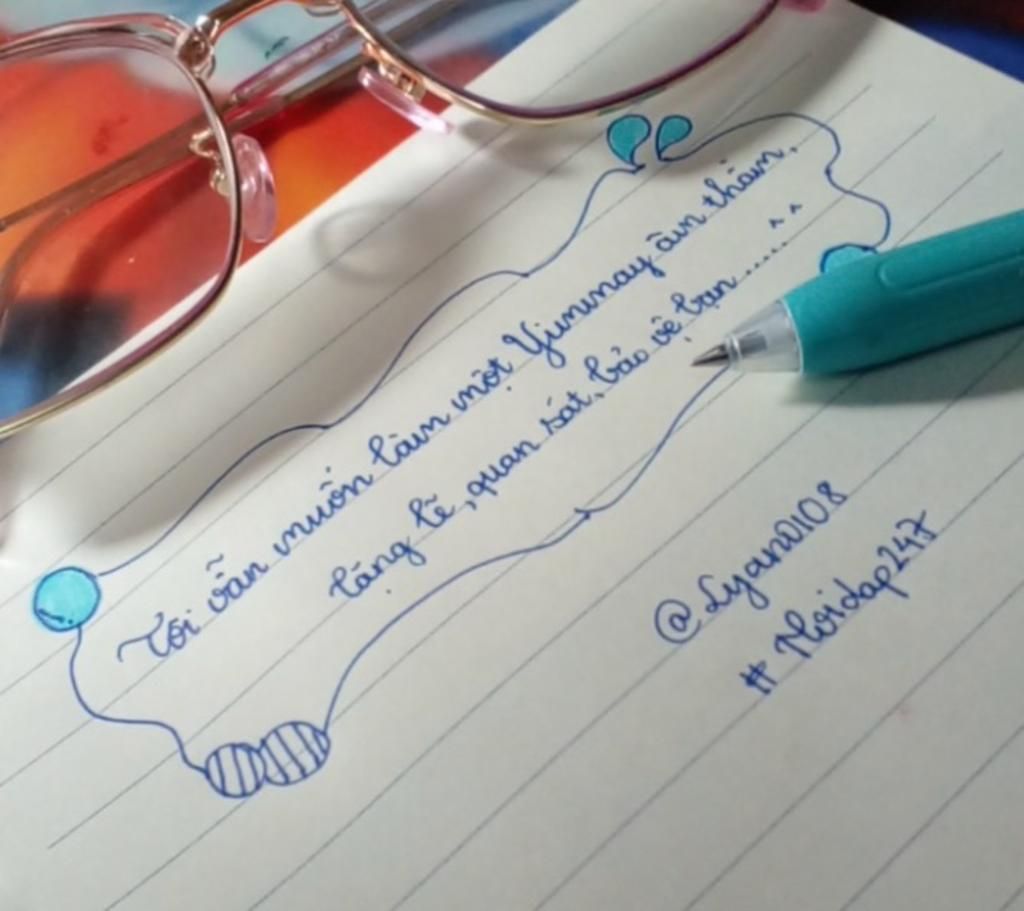 Tôi vẫn muốn làm một Yumnay âm thầm,
lặng lẽ, quan sát, bảo vệ bạn ..... ^^
@Lyan0108
# Hoidap247